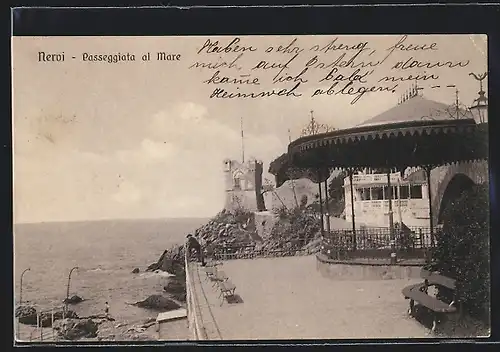 Nervi - Passeggiata al Mare
Haben sehr streng, freue
mich auf Ostern dann
kann ich bald mein
Heimweh ablegen.